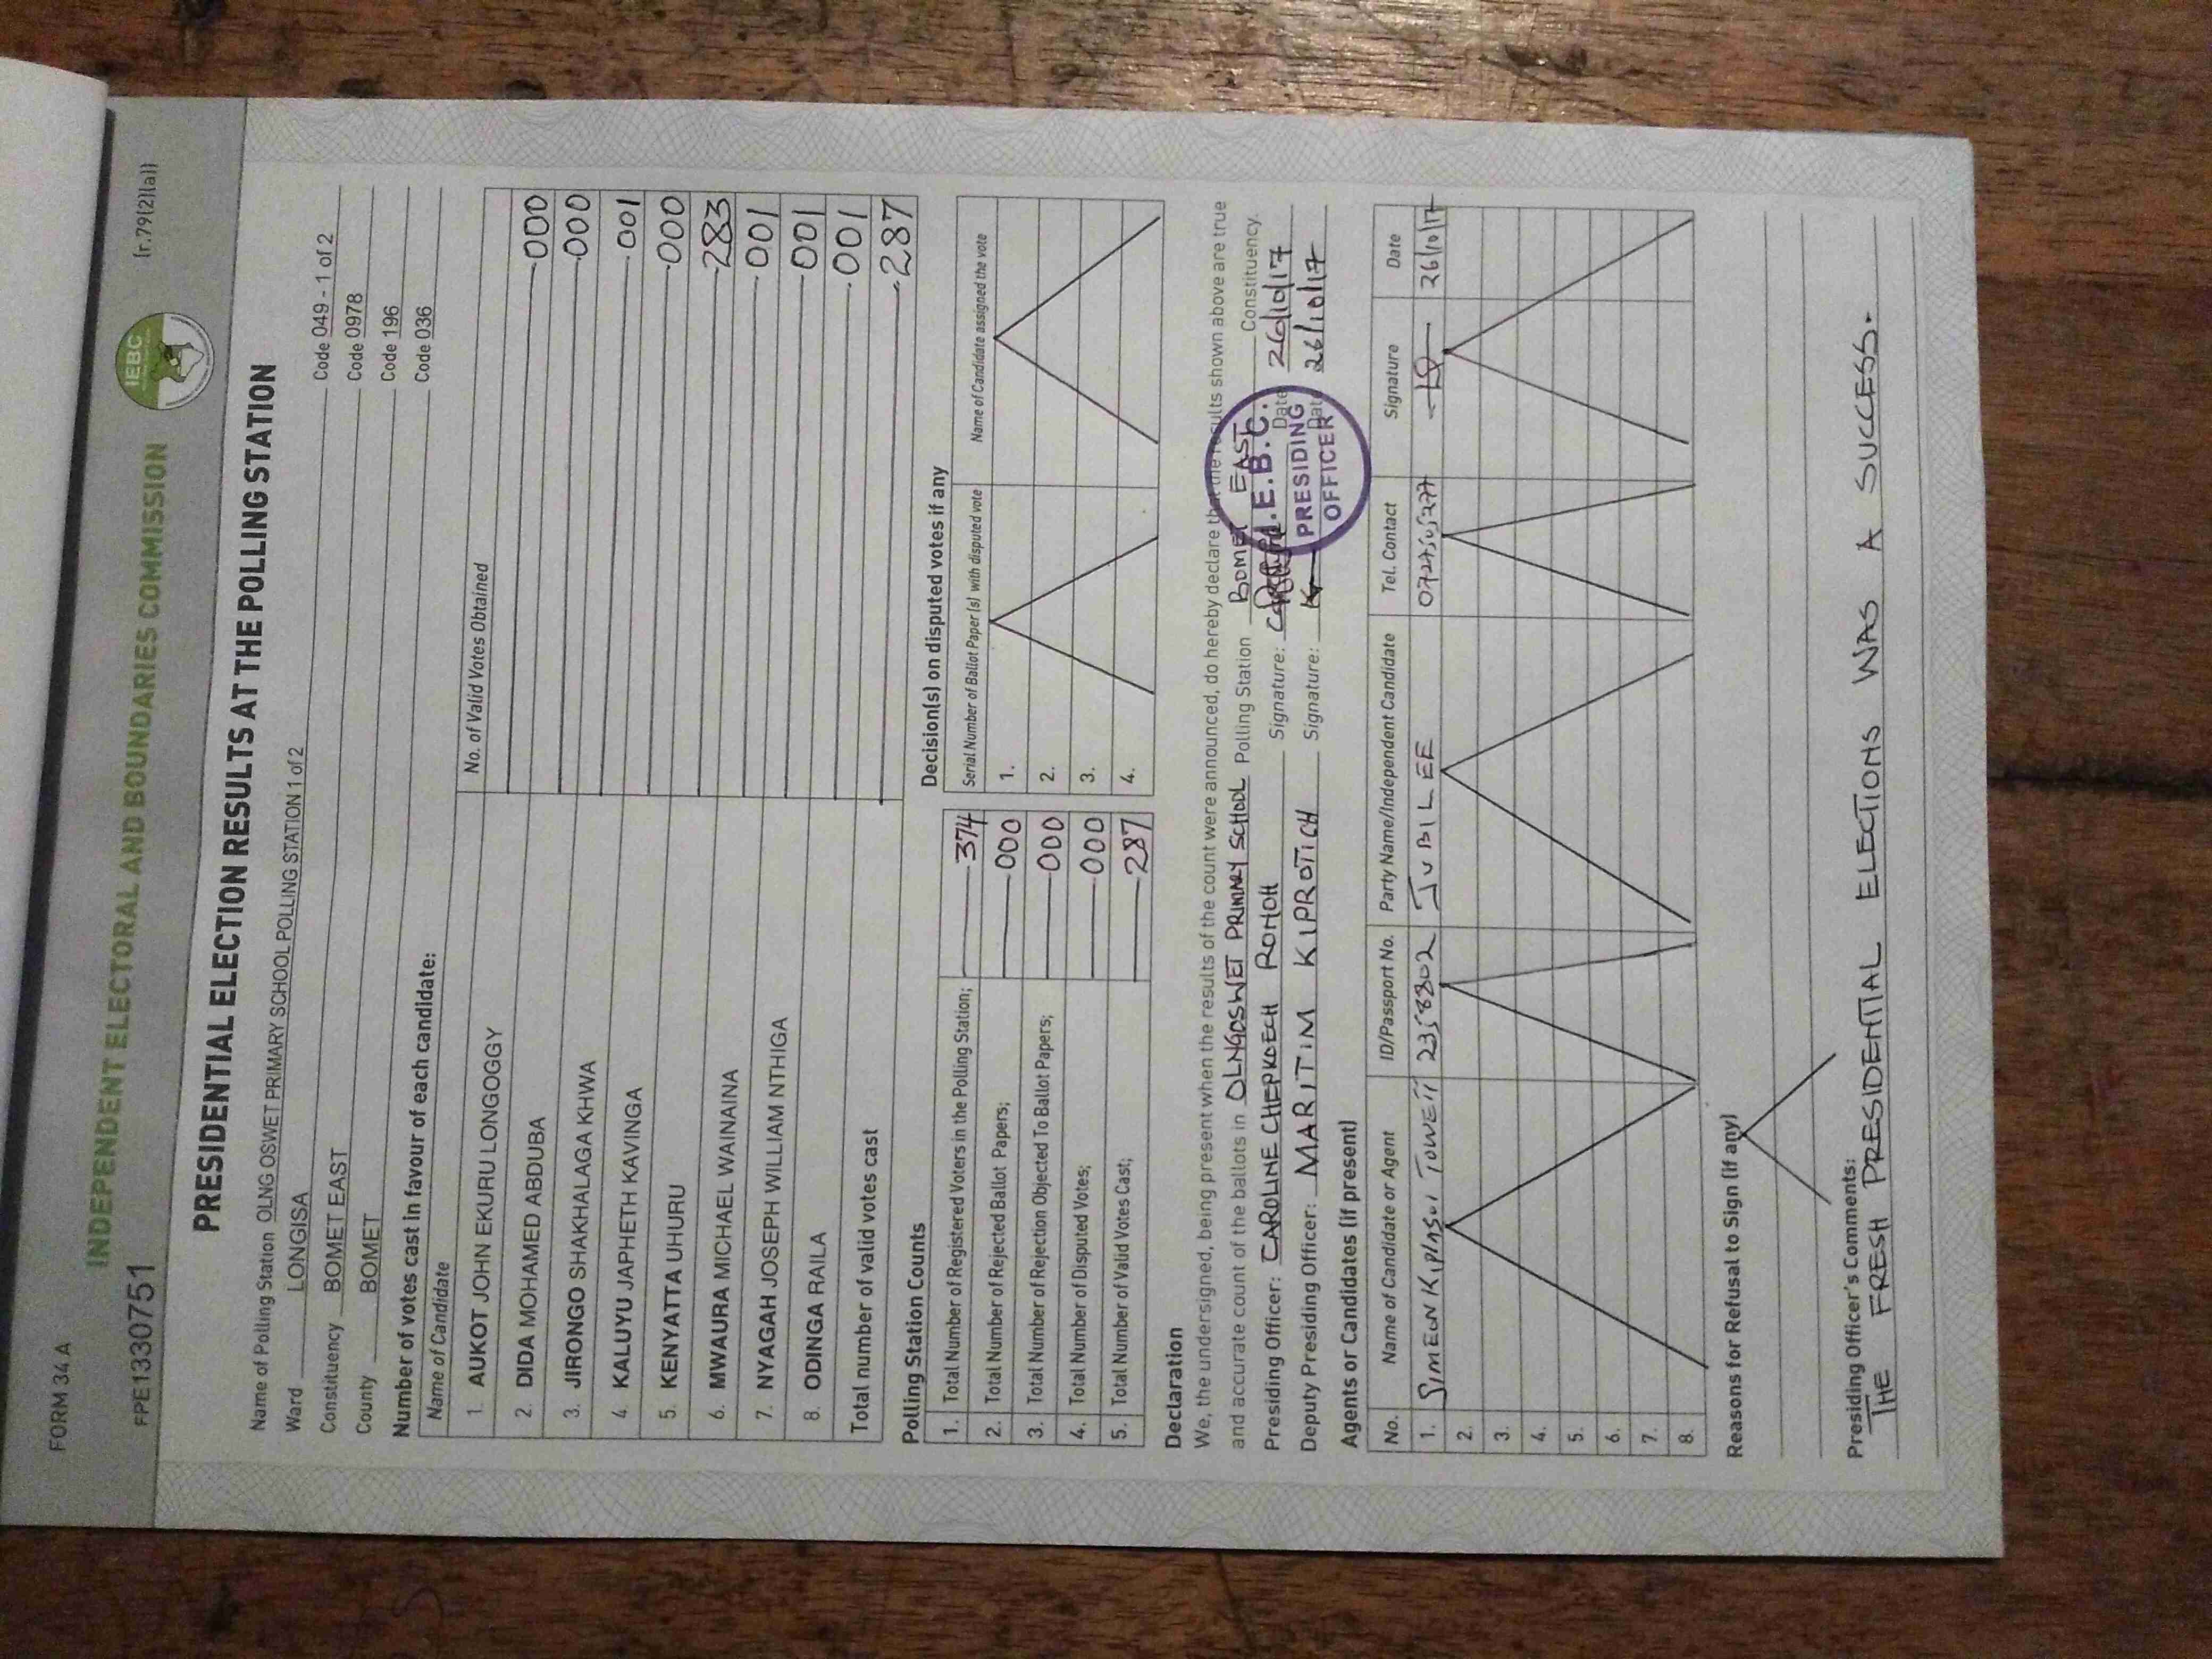 FORM 34 A
INDEPENDENT ELECTORAL AND BOUNDARIES COMMISSION
IEBC
FPE1330751
(r.79(2)(a))
PRESIDENTIAL ELECTION RESULTS AT THE POLLING STATION
Name of Polling Station OLNG OSWET PRIMARY SCHOOL POLLING STATION 1 of 2 Code 049 - 1 of 2
Ward LONGISA Code 0978
Constituency BOMET EAST Code 196
County BOMET Code 036
Number of votes cast in favour of each candidate:
Name of Candidate No. of Valid Votes Obtained
1. AUKOT JOHN EKURU LONGOGGY 000
2. DIDA MOHAMED ABDUBA 000
3. JIRONGO SHAKHALAGA KHWA 001
4 KALUYU JAPHETH KAVINGA 000
5. KENYATTA UHURU 283
6. MWAURA MICHAEL WAINAINA 001
7. NYAGAH JOSEPH WILLIAM NTHIGA 001
8. ODINGA RAILA 001
Total number of valid votes cast 287
Polling Station Counts
1. Total Number of Registered Voters in the Polling Station; 374
2. Total Number of Rejected Ballot Papers; 000
3. Total Number of Rejection Objected To Ballot Papers; 000
4. Total Number of Disputed Votes; 000
5. Total Number of Valid Votes Cast; 287
Decision(s) on disputed votes if any
Serial Number of Ballot Paper (s) with disputed vote Name of Candidate assigned the vote
1.
2.
3.
4.
Declaration
We, the undersigned, being present when the results of the count were announced, do hereby declare that the results shown above are true
and accurate count of the ballots in OLNGOSWET PRIMARY SCHOOL Polling Station BOMET EAST Constituency.
Presiding Officer: CAROLINE CHEPKOECH ROMOH Signature: Date 26/10/17
Deputy Presiding Officer: MARITIM KIPROTICH Signature: Date 26/10/17
I.E.B.C.
PRESIDING
OFFICER
Agents or Candidates (if present)
No. Name of Candidate or Agent ID/Passport No. Party Name/Independent Candidate Tel. Contact Signature Date
1. JUBILEE 26/10/17
2.
3.
4.
5.
6.
7.
8.
Reasons for Refusal to Sign (if any)
Presiding Officer's Comments:
THE FRESH PRESIDENTIAL ELECTIONS WAS A SUCCESS.